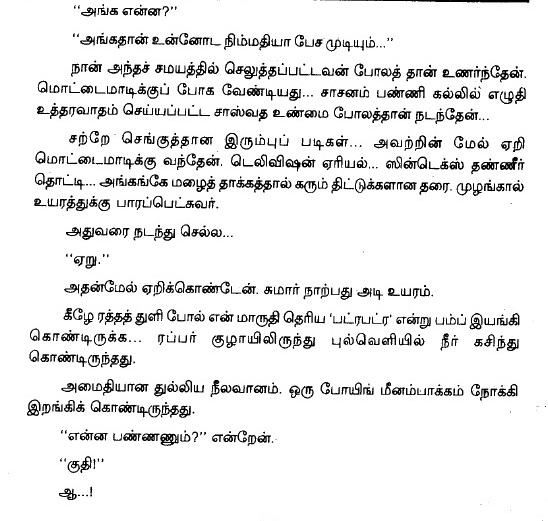 “அங்க என்ன?”
“அங்கதான் உன்னோட நிம்மதியா பேச முடியும்...”
நான் அந்தச் சமயத்தில் செலுத்தப்பட்டவன் போலத் தான் உணர்ந்தேன்.
மொட்டைமாடிக்குப் போக வேண்டியது... சாசனம் பண்ணி கல்லில் எழுதி
உத்தரவாதம் செய்யப்பட்ட சாஸ்வத உண்மை போலத்தான் நடந்தேன்...
சற்றே செங்குத்தான இரும்புப் படிகள்... அவற்றின் மேல் ஏறி
மொட்டைமாடிக்கு வந்தேன். டெலிவிஷன் ஏரியல்... ஸின்டெக்ஸ் தண்ணீர்
தொட்டி... அங்கங்கே மழைத் தாக்கத்தால் கரும் திட்டுக்களான தரை. முழங்கால்
உயரத்துக்கு பாரப்பெட்சுவர்.
அதுவரை நடந்து செல்ல...
“ஏறு.”
அதன்மேல் ஏறிக்கொண்டேன். சுமார் நாற்பது அடி உயரம்.
கீழே ரத்தத் துளி போல் என் மாருதி தெரிய ‘பட்ரபட்ர’ என்று பம்ப் இயங்கி
கொண்டிருக்க... ரப்பர் குழாயிலிருந்து புல்வெளியில் நீர் கசிந்து
கொண்டிருந்தது.
அமைதியான துல்லிய நீலவானம். ஒரு போயிங் மீனம்பாக்கம் நோக்கி
இறங்கிக் கொண்டிருந்தது.
“என்ன பண்ணணும்?” என்றேன்.
“குதி!”
ஆ...!